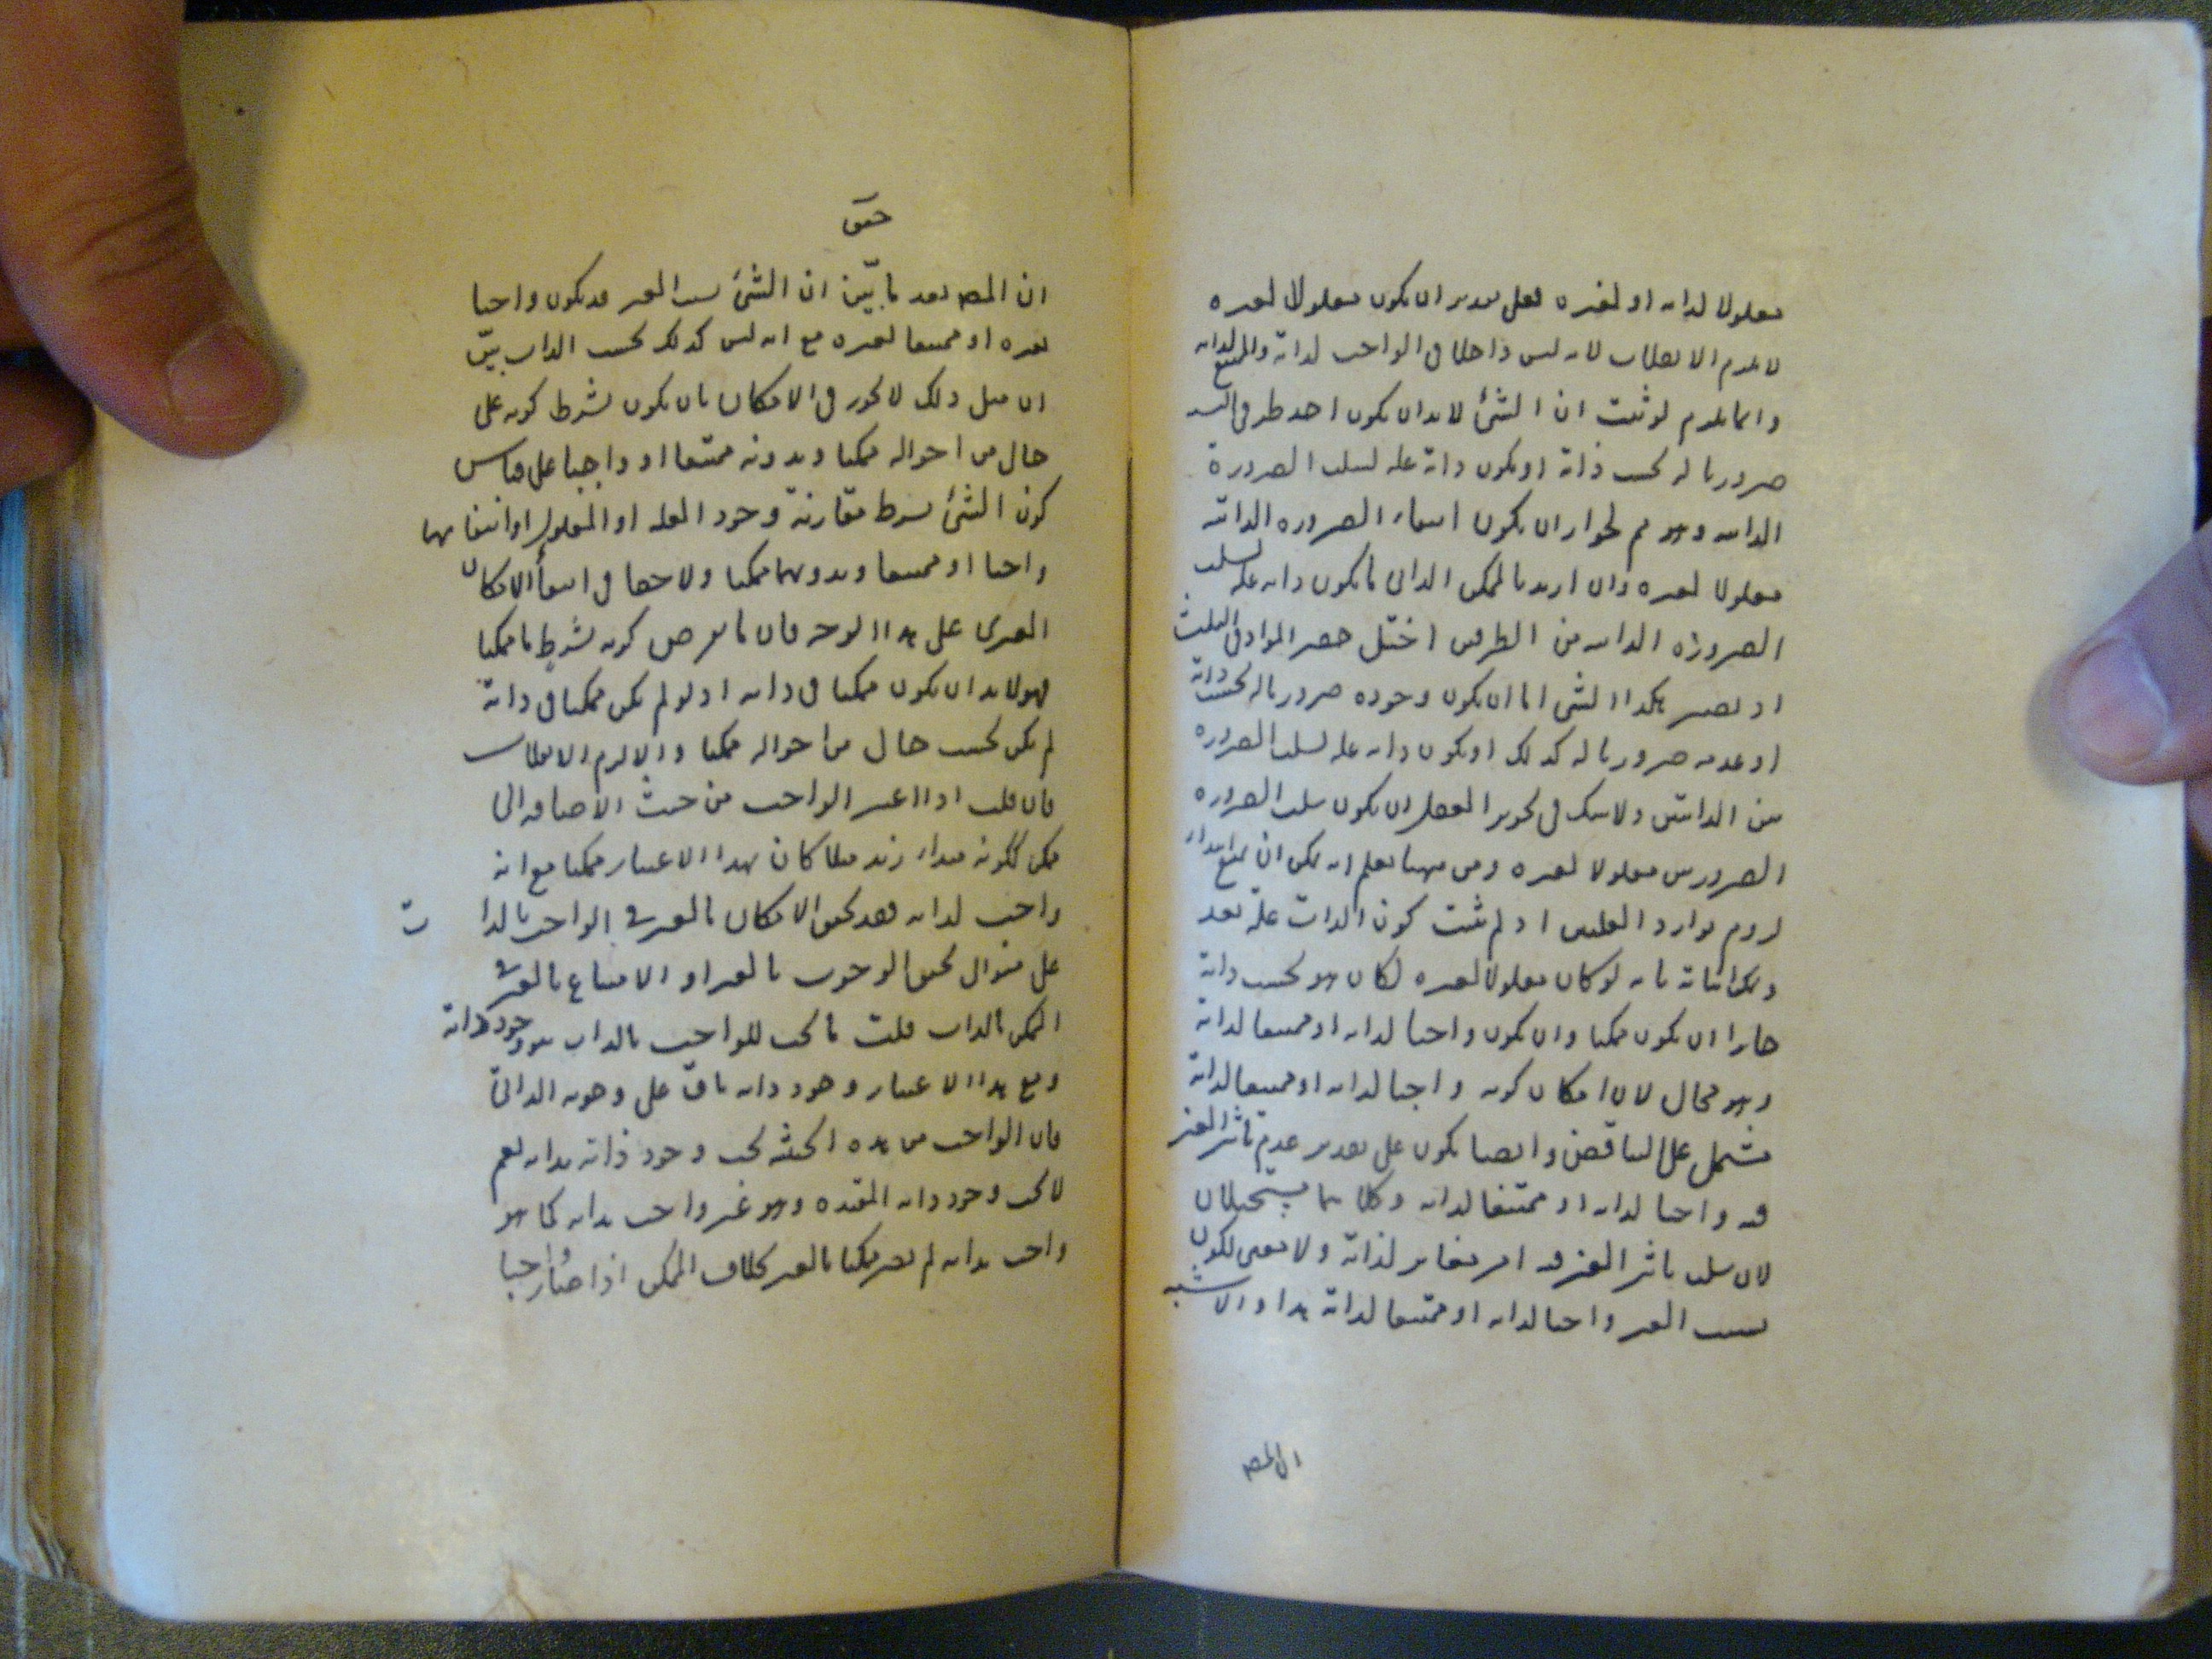 معلولا لذاته او لغيره فعلى تقدير ان يكون معلولا لغيره
لا يلزم الانقلاب لانه ليس داخلا فى الواجب لذاته والممتع لذاته
وانما يلزم لو ثبت ان الشئ لا بد ان يكون احد طرفى
ضروريا له بحسب ذاته او يكون ذاته علة لسلب الضرورة
الذاتيه وهو مم لجواز ان يكون انتفاء الضروره الذاتيه
معلولا لغيره وان اريد بالممكن الذاتى ما يكون ذاته علة لسلب
الضروره الذاتيه من الطرفين اختل حصر المواد فى الثلث
اذ يصير هكذا الشئ اما ان يكون وجوده ضروريا له بحسب ذاته
او عدمه ضروريا له كذلك او يكون ذاته علة لسلب الضروره
من الذاتين ولا شك فى تجويز العقل ان يكون سلب الضروره
الضرورين معلولا لغيره ومن ههنا تعلم انه يمكن ان يمنع ابتداء
لزوم توارد العلتين اذ لم يثبت كون الذات علة بعد
ويمكن اثباته بانه لو كان معلولا لغيره لكان هو بحسب ذاته
جايزا ان يكون ممكنا وان يكون واجبا لذاته او ممتنعا لذاته
وهو محال لان امكان كونه واجبا لذاته او ممتنعا لذاته
مشتمل على التناقض وايضا يكون على تقدير عدم تاثير الغير
فيه واجبا لذاته او ممتنعا لذاته وكلاهما مستحيلان
لان سلب تاثير الغير فيه امر مغاير لذاته ولا معنى لكون
بسبب الغير واجبا لذاته او ممتنعا لذاته هذا والاشبه
ان المص
ان المص بعد ما بيّن ان الشئ بسبب الغير قد يكون واجبا
لغيره او ممتنعا لغيره مع انه ليس كذلك بحسب الذات بيّن
ان مثل ذلك لا يجوز فى الامكان بان يكون بشرط كونه على
حال من احواله ممكنا وبدونه ممتنعا او واجبا على قياس
كون الشئ بشرط مقارنة وجود العلة او المعلول او انتفائهما
واجبا او ممتنعا وبدونهما ممكنا ولا خفا فى انتفاء الامكان
الغيرى على هذا الوجه فان ما يفرض كونه بشرط ما ممكنا
فهو لا بد ان يكون ممكنا فى ذاته اذ لو لم يكن ممكنا فى ذاته
لم يكن بحسب حال من احواله ممكنا والا لزم الانقلاب
فان قلت اذا اعتبر الواجب من حيث الاضافه الى
ممكن ككونه مبداء زيد مثلا كان بهذا الاعتبار ممكنا مع انه
واجب لذاته فقد تحقق الامكان بالغير فى الواجب بالذات
على منوال تحقق الوجوب بالغير او الامتناع بالغير فى
الممكن بالذات قلت ما يجب للواجب بالذات هو وجود ذاته
ومع هذا الاعتبار وجود ذاته باق على وجوبه الذاتى
فان الواجب من هذه الحيثيه يجب وجود ذاته بذاته نعم
لا يجب وجود ذاته المقيده وهو غير واجب بذاته فما هو
واجب بذاته لم يصر ممكنا بالغير بخلاف الممكن اذا صار واجبا